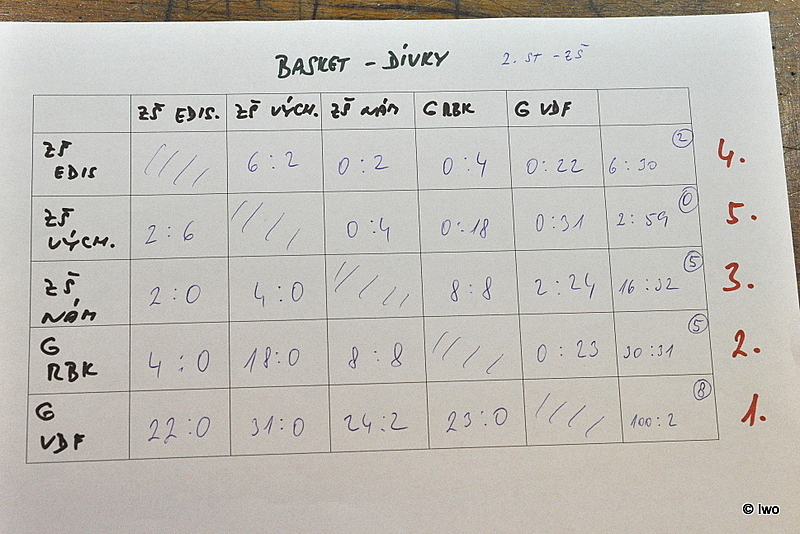 BASKET - DÍVKY 2. ST - ZŠ
ZŠ EDIS. ZŠ VÝCH. ZŠ NÁM G RBK G VDF
ZŠ EDIS 6:2 0:2 0:4 0:22 6:30 2 4.
ZŠ VÝCH. 2:6 0:4 0:18 0:31 2:59 0 5.
ZŠ NÁM 2:0 4:0 8:8 2:24 16:32 5 3.
G RBK 4:0 18:0 8:8 0:23 30:31 5 2.
G VDF 22:0 31:0 24:2 23:0 100:2 8 1.
© Iwo